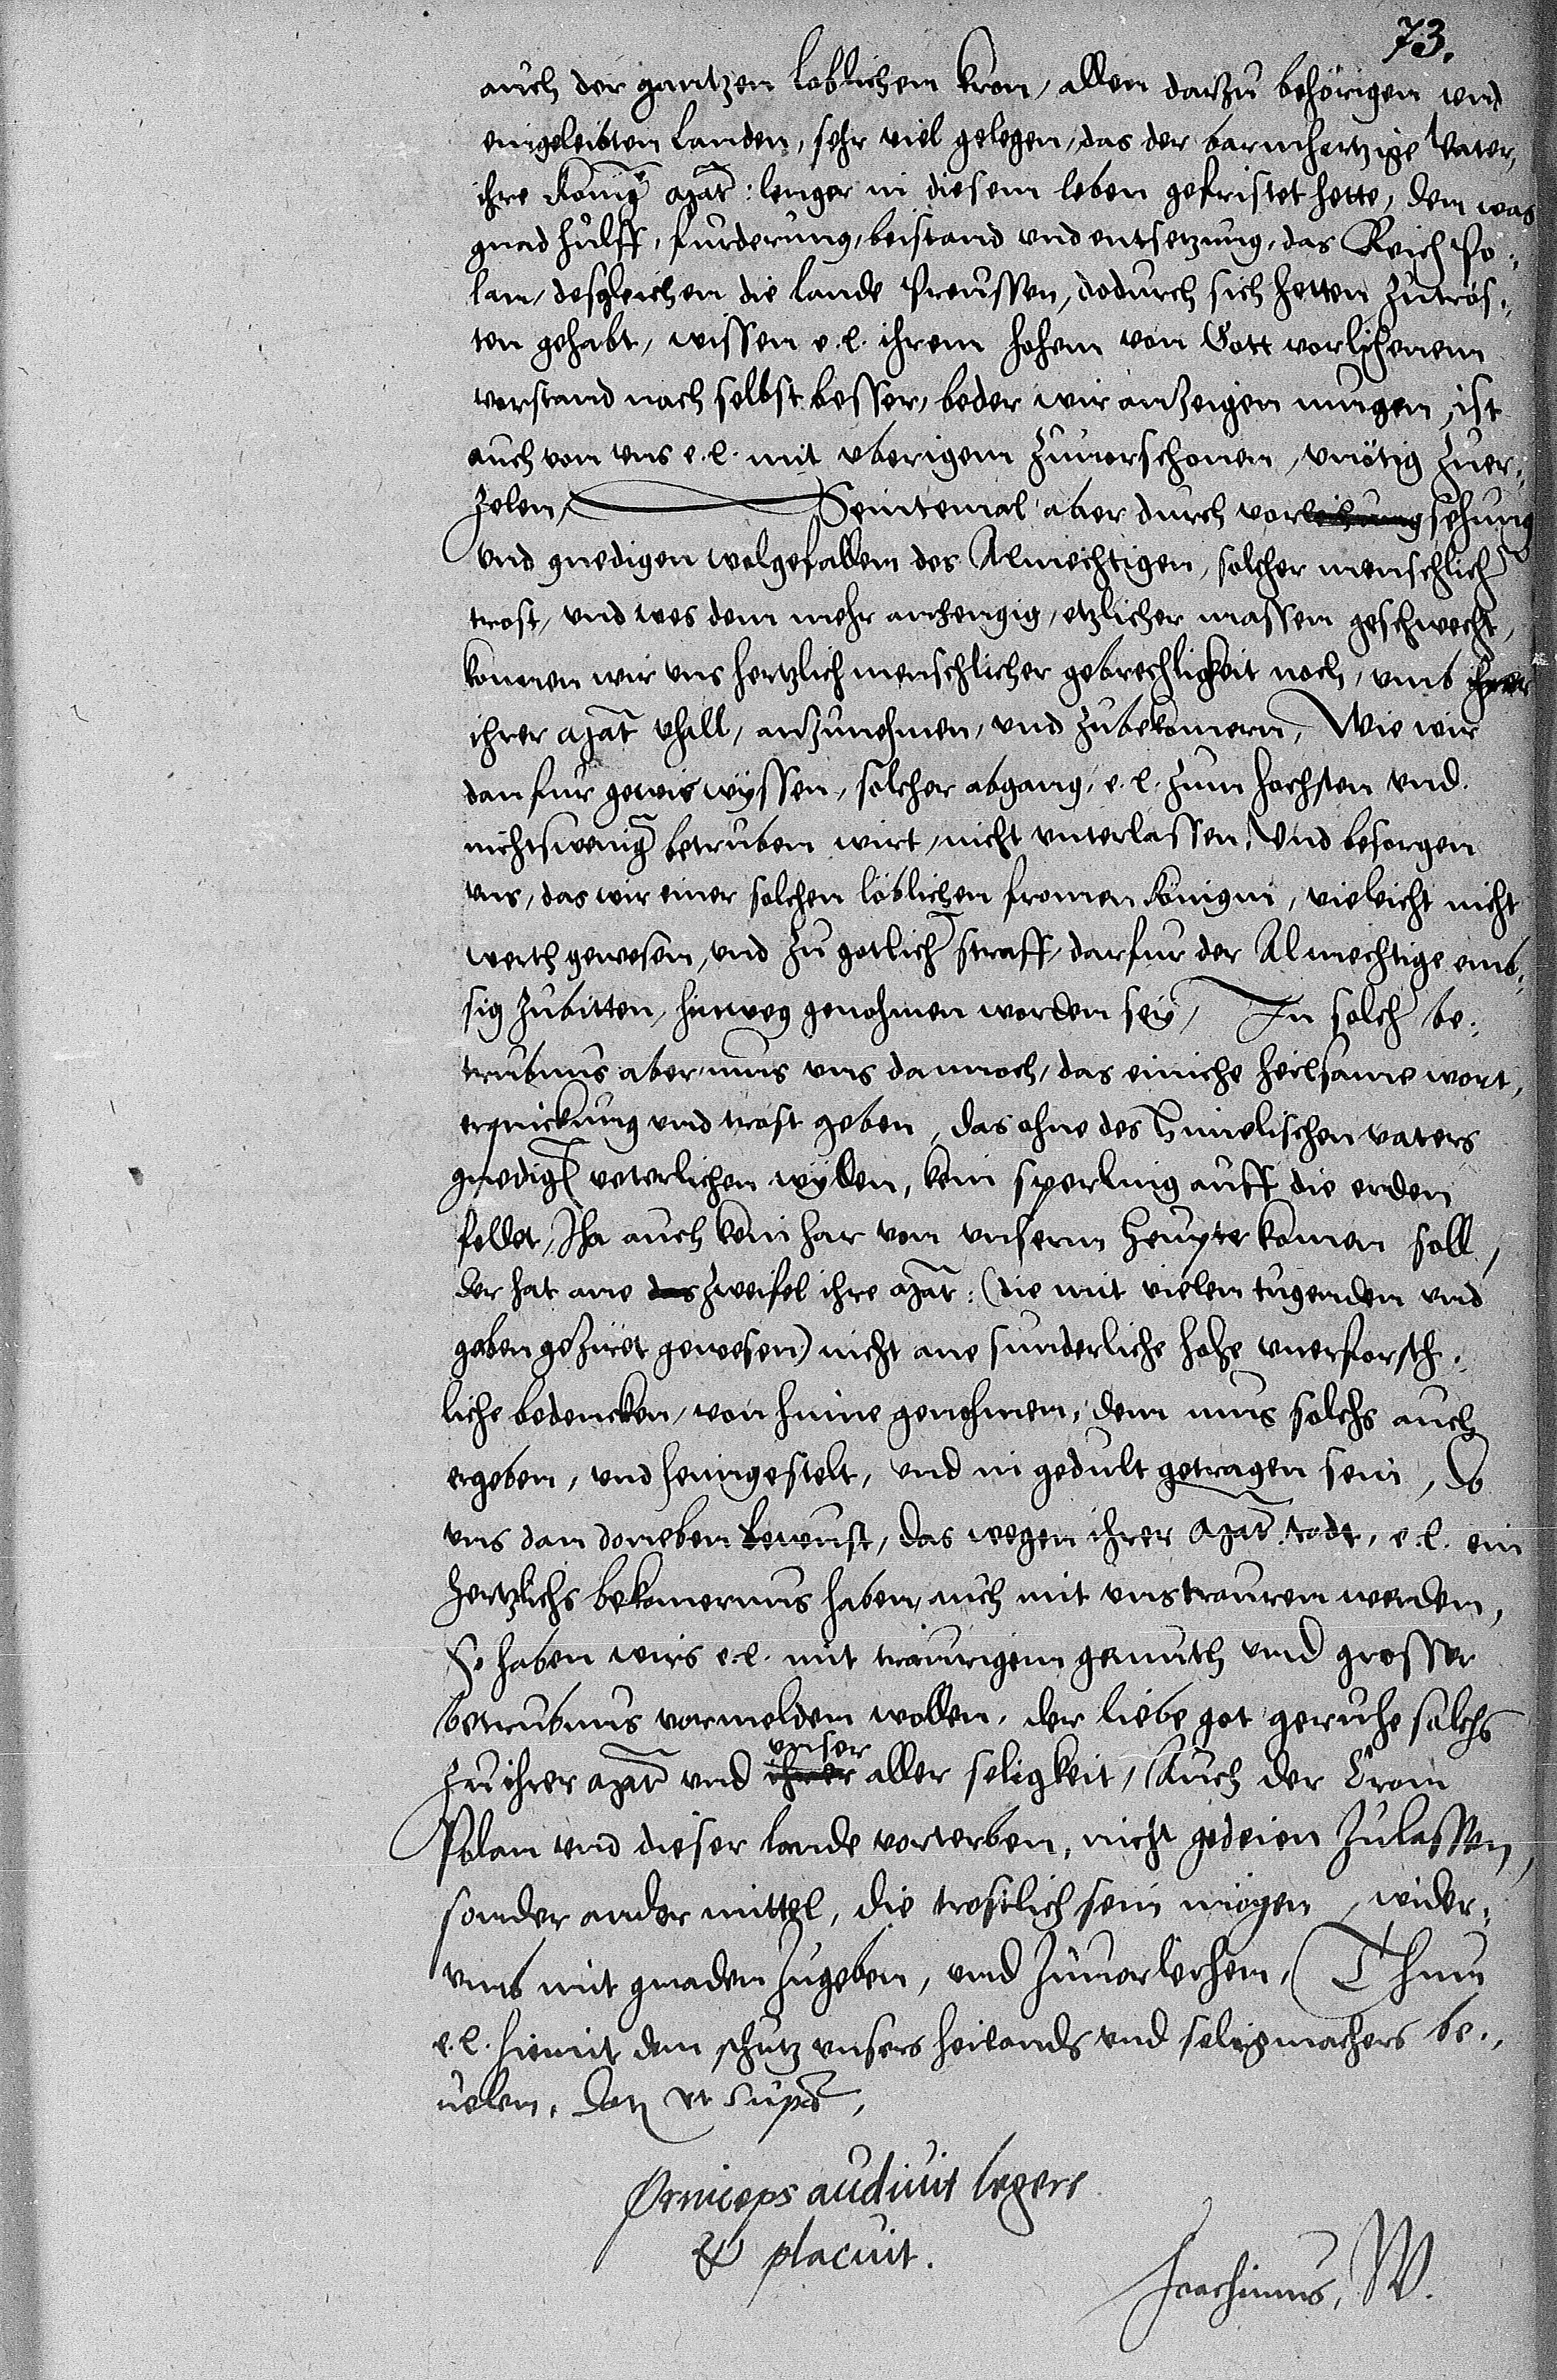 73.
auch der gantzen loblichen kron, allen darzu behörigen vnd
eingeleibten landen, sehr viel gelegen, das der barmhertzige Vater,
ihre König mat: lenger in diesem leben gefristet hette, den was
gnad hulff, furderung, beistand vnd entsetzung, das Reich Po:
lan, desgleichen die lande Preussen, dodurch sich hetten zutrös:
ten gehabt, wissen e. l. ihrem hohem von Gott vorlihenem
vorstand noch selbst besser, beder wir anzeigen mugen, ist
auch von vns e. l. mit vberigem zuuorschonen, vnötig zuer:
zelen, Seintemal aber durch vorleihung sehung
vnd gnedigen wolgefallen des Almechtigen, solcher menschlich
trost, vnd wes dem mehr anhengig, etzlicher massen geschwecht,
konnen wir vns hertzlich menschlicher gebrechligkeit noch, vmb ihrer
ihrer mat fhall, anzunehmen, vnd zubekomern, Wie wir
dan fur gewis wyssen, solcher abgang, e. l. zum hochsten vnd
nichtswenig betruben wirt, nicht vnterlassen. Vnd besorgen
vns, das wir einer solchen löblichen fromen Königin, vieleicht nicht
werth gewesen, vnd zu gotlich straff, darfur der Almechtige emb:
sig zubitten, hinweg genohmen worden sey, In solch be:
trubnus aber, mus vns dannoch, das einiche heilsame wort,
erquickung vnd trost geben, das ohne des himelischen vaters
gnedig veterlichen wyllen, kein sperling auff die erden
fellet, Jha auch kein har von vnserm heupte komen soll,
der hat ane das zweifel ihre mat: (die mit vielen tugenden vnd
gaben geziret gewesen) nicht ane sunderliche hohe vnerforsch:
liche bedencken, von hinne genohmen, dem mus solchs auch
ergeben, vnd heimgestelt, vnd in gedult getragen sein, Do
vns dan doneben bewust, das wegen ihrer mat. todt, e. l. ein
hertzlichs bekomernus haben, auch mit vns trauren werden,
So haben wirs e. l. mit traurigem gemuth vnd grosser
betrubnus vormelden wollen, der liebe got geruhe solchs
zu ihrer mat vnd ihrer vnser aller seligkeit, Auch der Cron
Polan vnd dieser lande vorterben, nicht gedeien zulassen,
sonder ander mittel, die trostlich sein mögen, wider:
vmb mit gnaden zugeben, vnd zuuorleihen, Thun
e. l. hiemit dem schutz vnsers heilands vnd seligmachers be:
uelen. Datum vt supra,
Princeps audiuit legere
& placuit.
Joachimus, W.